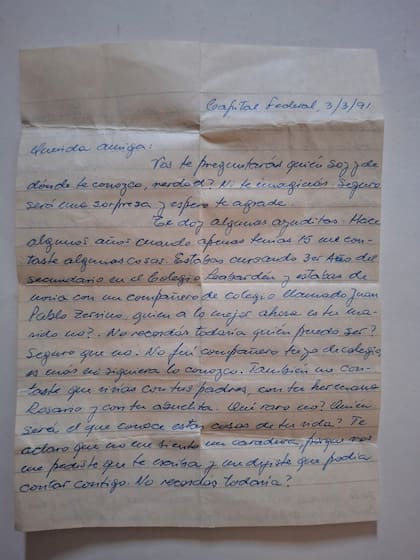 Capital Federal, 3/3/91
Querida amiga:
Vos te preguntarás quién soy y de
dónde te conozco, verdad? Ni te imaginás. Seguro
será una sorpresa y espero te agrade.
Te doy algunas ayuditas. Hace
algunos años cuando apenas tenías 15 me con-
taste algunas cosas. Estabas cursando 3er Año del
secundario en el Colegio y estabas de
novia con un compañero de colegio llamado Juan
Pablo, quien a lo mejor ahora es tu ma-
rido no?. No recordás todavía quién puedo ser?
Seguro que no. No fuí compañero tuyo de colegio,
es más ni siquiera lo conozco. También me con-
taste que vivías con tus padres, con tu hermana
Rosario y con tu abuelita. Qué raro no? Quién
será el que conoce estas cosas de tu vida? Te
aclaro que no me siento un caradura, porque vos
me pediste que te escriba y me dijiste que podía
contar contigo. No recordás todavía?